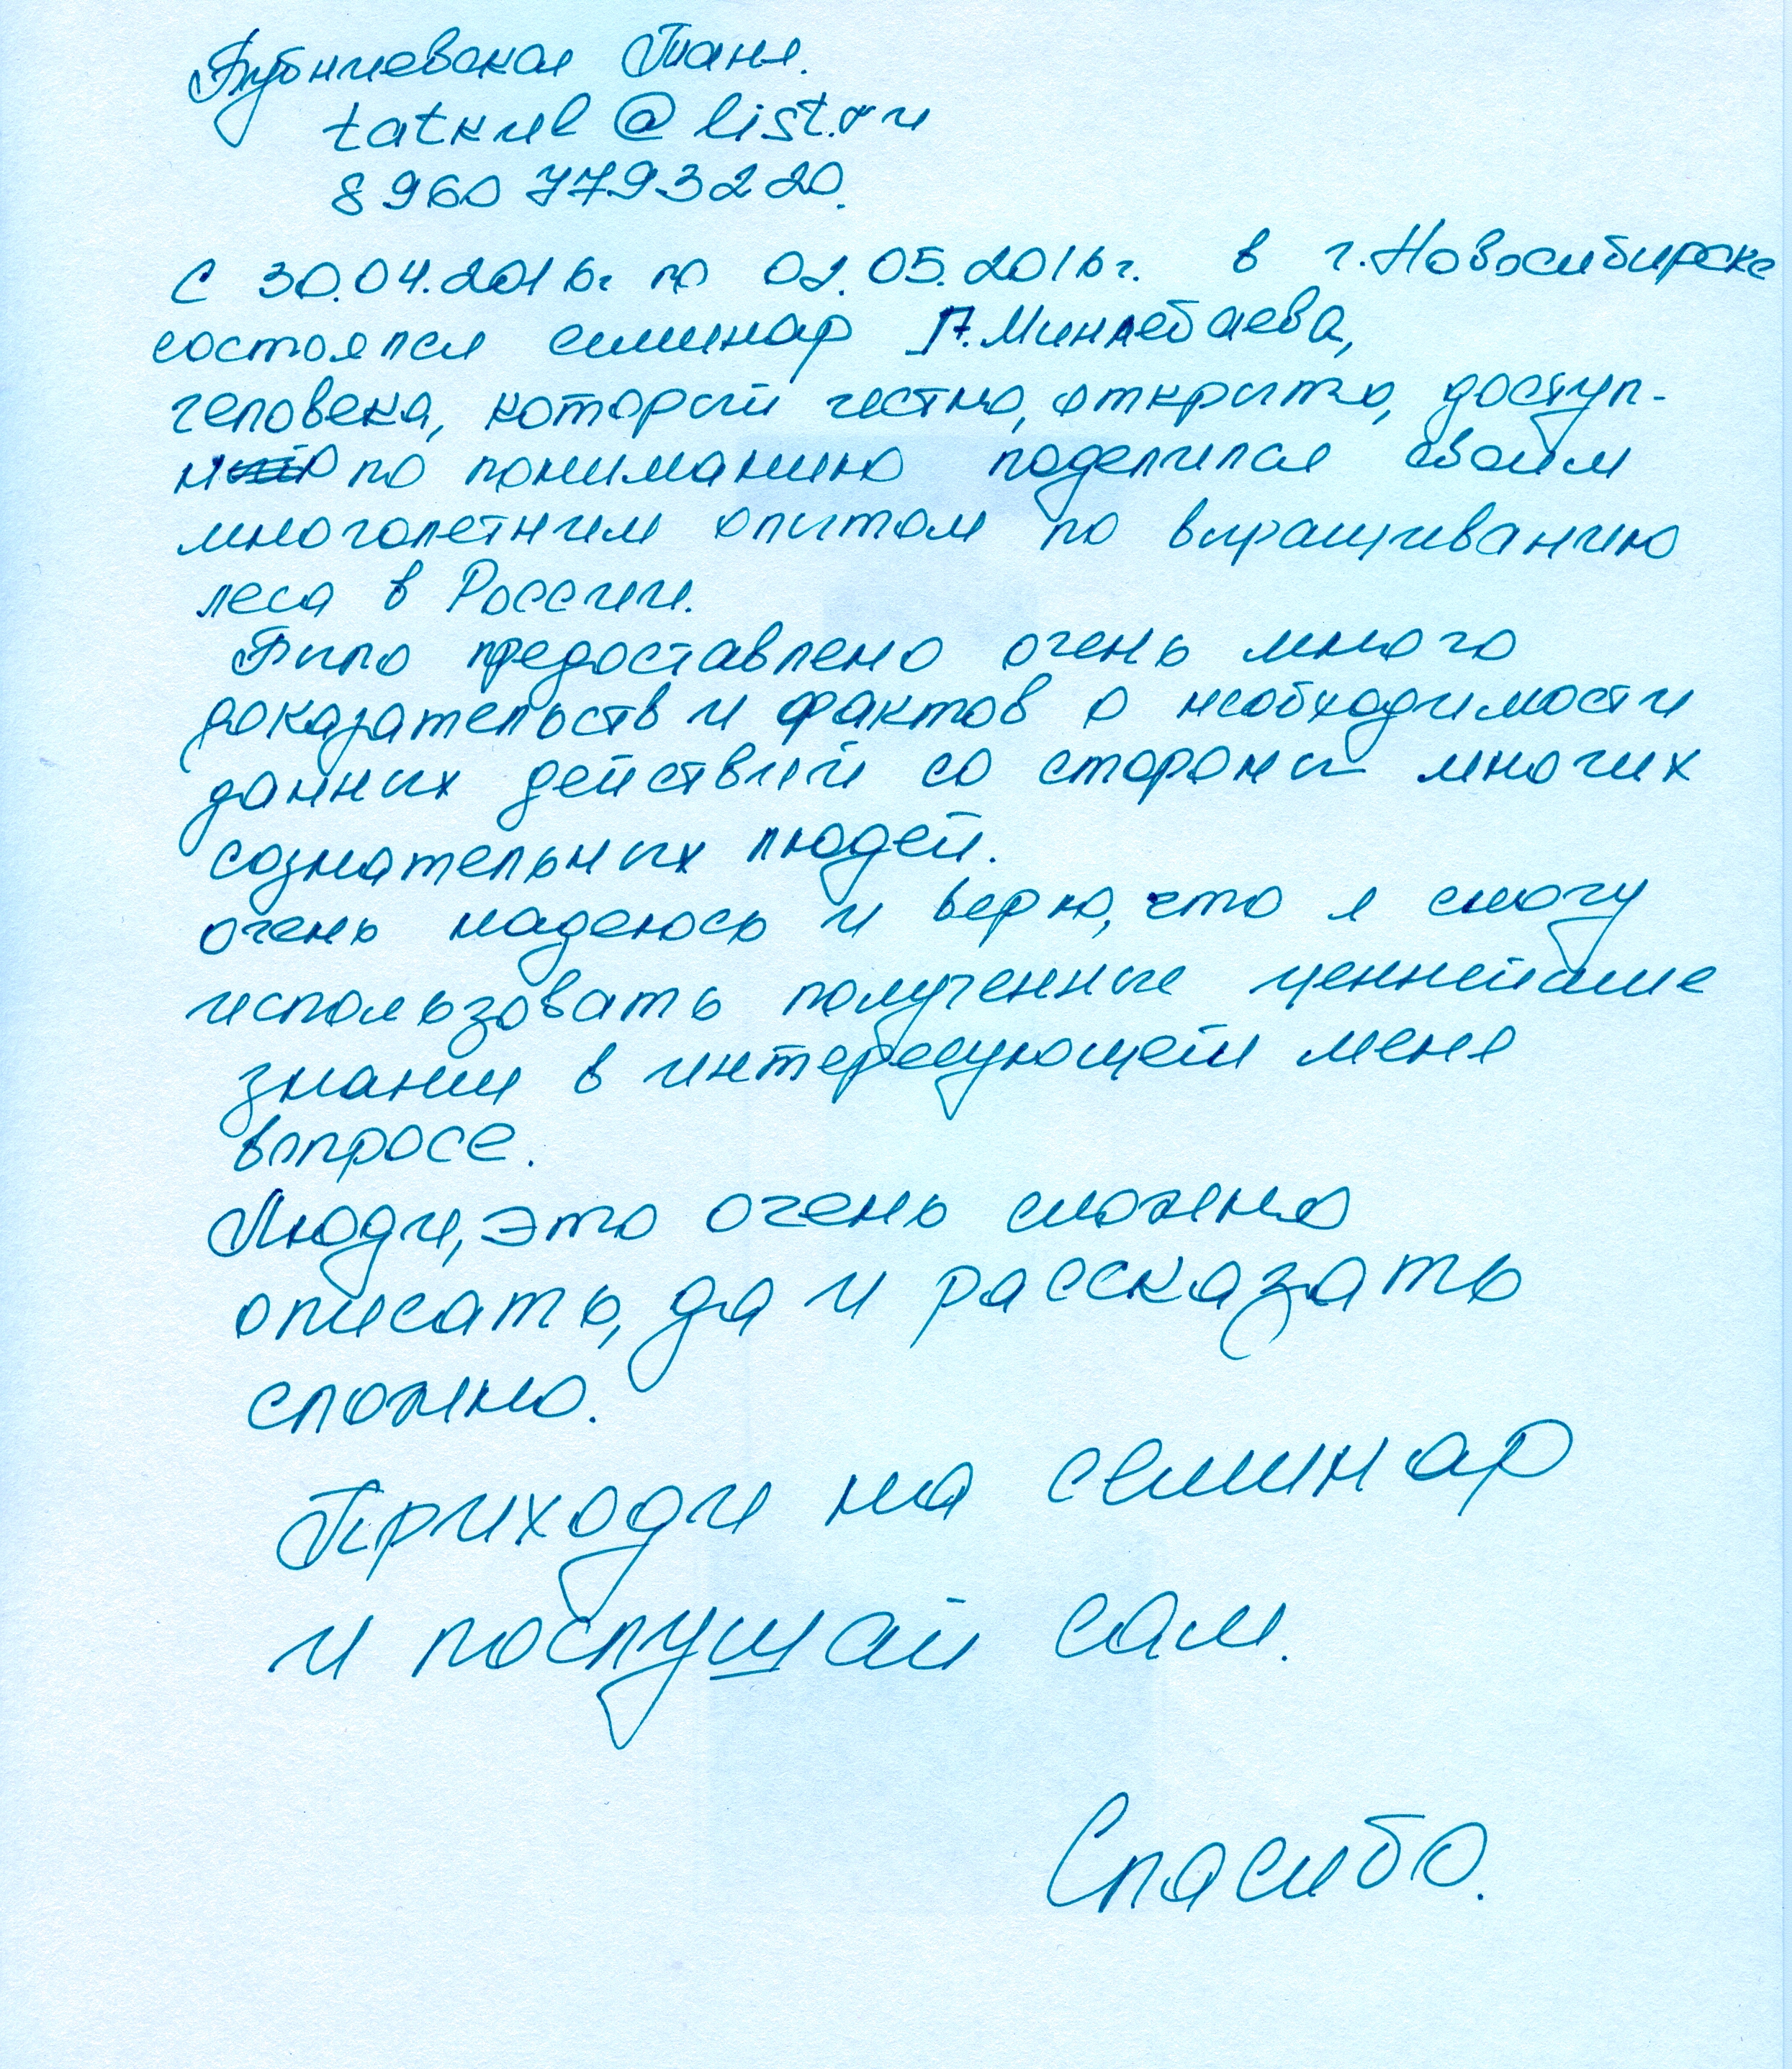 Таня.
@list.ru
8 960 7793220.
С 30.04.2016г по 02.05.2016г. в г.Новосибирске
состоялся семинар П.Миннебаева,
человека, который честно, открыто, доступ-
но по пониманию поделился своим
многолетним опытом по выращиванию
леса в России.
Было предоставлено очень много
доказательств и фактов о необходимости
данных действий со стороны многих
сознательных людей.
очень надеюсь и верю, что я смогу
использовать полученные ценнейшие
знания в интересующем меня
вопросе.
Люди, это очень сложно
описать, да и рассказать
сложно.
Приходи на семинар
и послушай сам.
Спасибо.